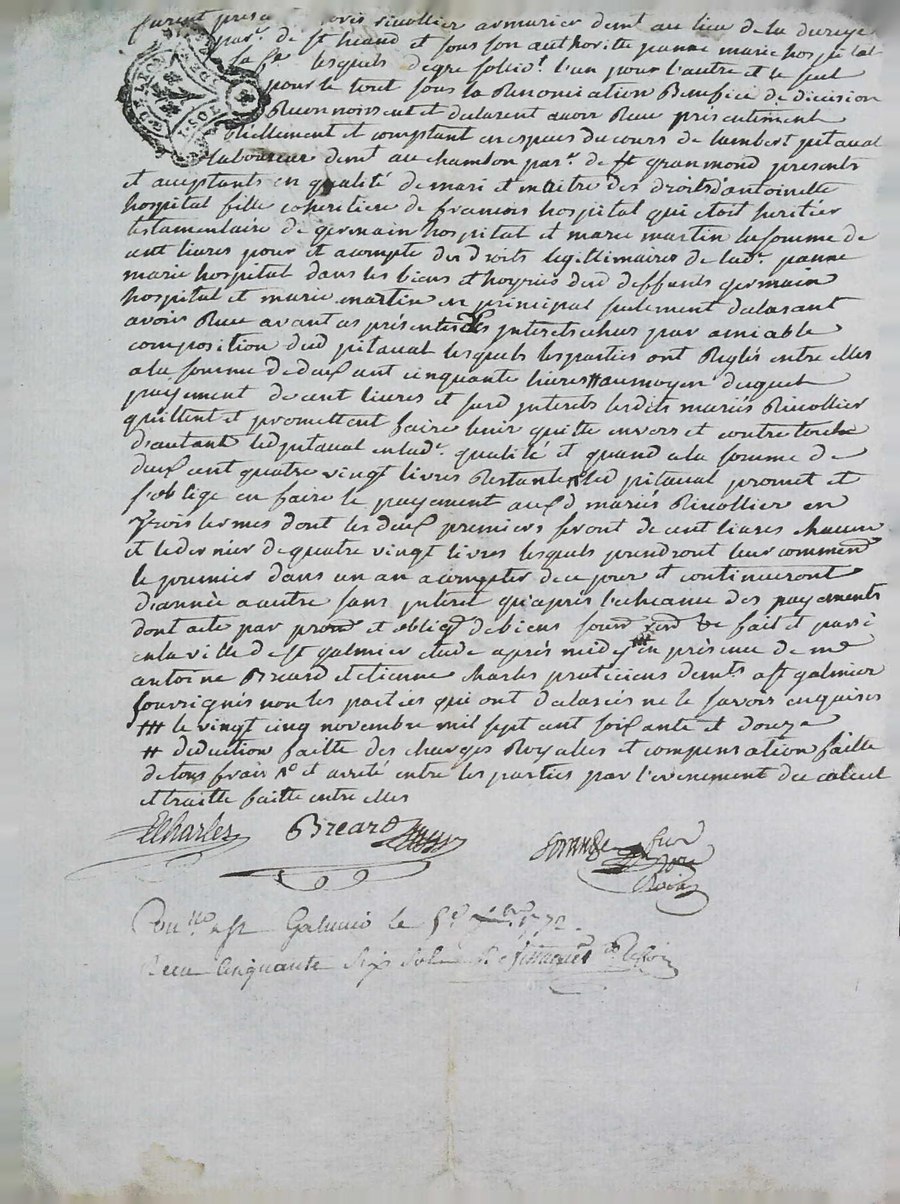 furent presa ovis ricollier armurier demt au lieu de la dureye
par. de st heand et sous son authorite jeanne marie hospital
sa fe lesquels degre sollidt l'un pour l'autre et le seul
pour le tout sous la Renonciation Benefice de division
Reconnoissent et declarent avoir Reçu présentement
réellement et comptant en espèces du cours de lambert pitaval
laboureur demt au chambon par. de st granmond présents
et aceptants en qualité de mari et maitre des droits d'antoinette
hospital fille coheritiere de francois hospital qui etoit heritier
testamentaire de germain hospital et marie martin la somme de
cent livres pour et acompte des droits legitimaires de lade. jeanne
marie hospital dans les biens et hoyries desd deffunts germain
hospital et marie martin en principal seulement declarant
avoir Reçu avant ces présentes les interets echus par amiable
composition dud pitaval lesquels les parties ont Reglés entre elles
a la somme de deux cent cinquante livres # au moyen duquel
payement de cent livres et surd interets lesdits mariés Ricollier
quittent et promettent faire tenir quitte envers et contre tous
d'autant led pitaval en lade. qualité et quand a la somme de
deux cent quatre vingt livres Restante led pitaval promet et
s'oblige en faire le payement auxd mariés Ricollier en
trois termes dont les deux premiers seront de cent livres chacun
et le dernier de quatre vingt livres lesquels prendront leur commend
le premier dans un an a compter de ce jour et continueront
d'année a autre sans interet qu'après l'echeance des payements
dont acte par promd et obligd de biens soumd rend &c fait et passé
en la ville de st galmier etude après midy ### en présence de me
antoine Breard et etienne charles praticiens demts a st galmier
soussignés non les parties qui ont declarés ne le savoir enquises
### le vingt cinq novembre mil sept cent soixante et douze
# deduction faitte des charges Royalles et compensation faitte
de tous frais et arreté entre les parties par l'evenement du calcul
et traitte faitte entre elles
ECharles Breard
a st Galmier le 1772.
Reçu cinquante six sols